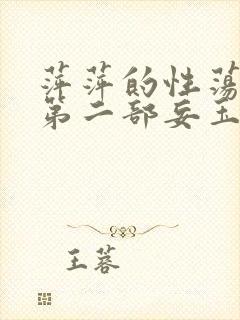 萍萍的性荡
第二部妄玉
王蓉